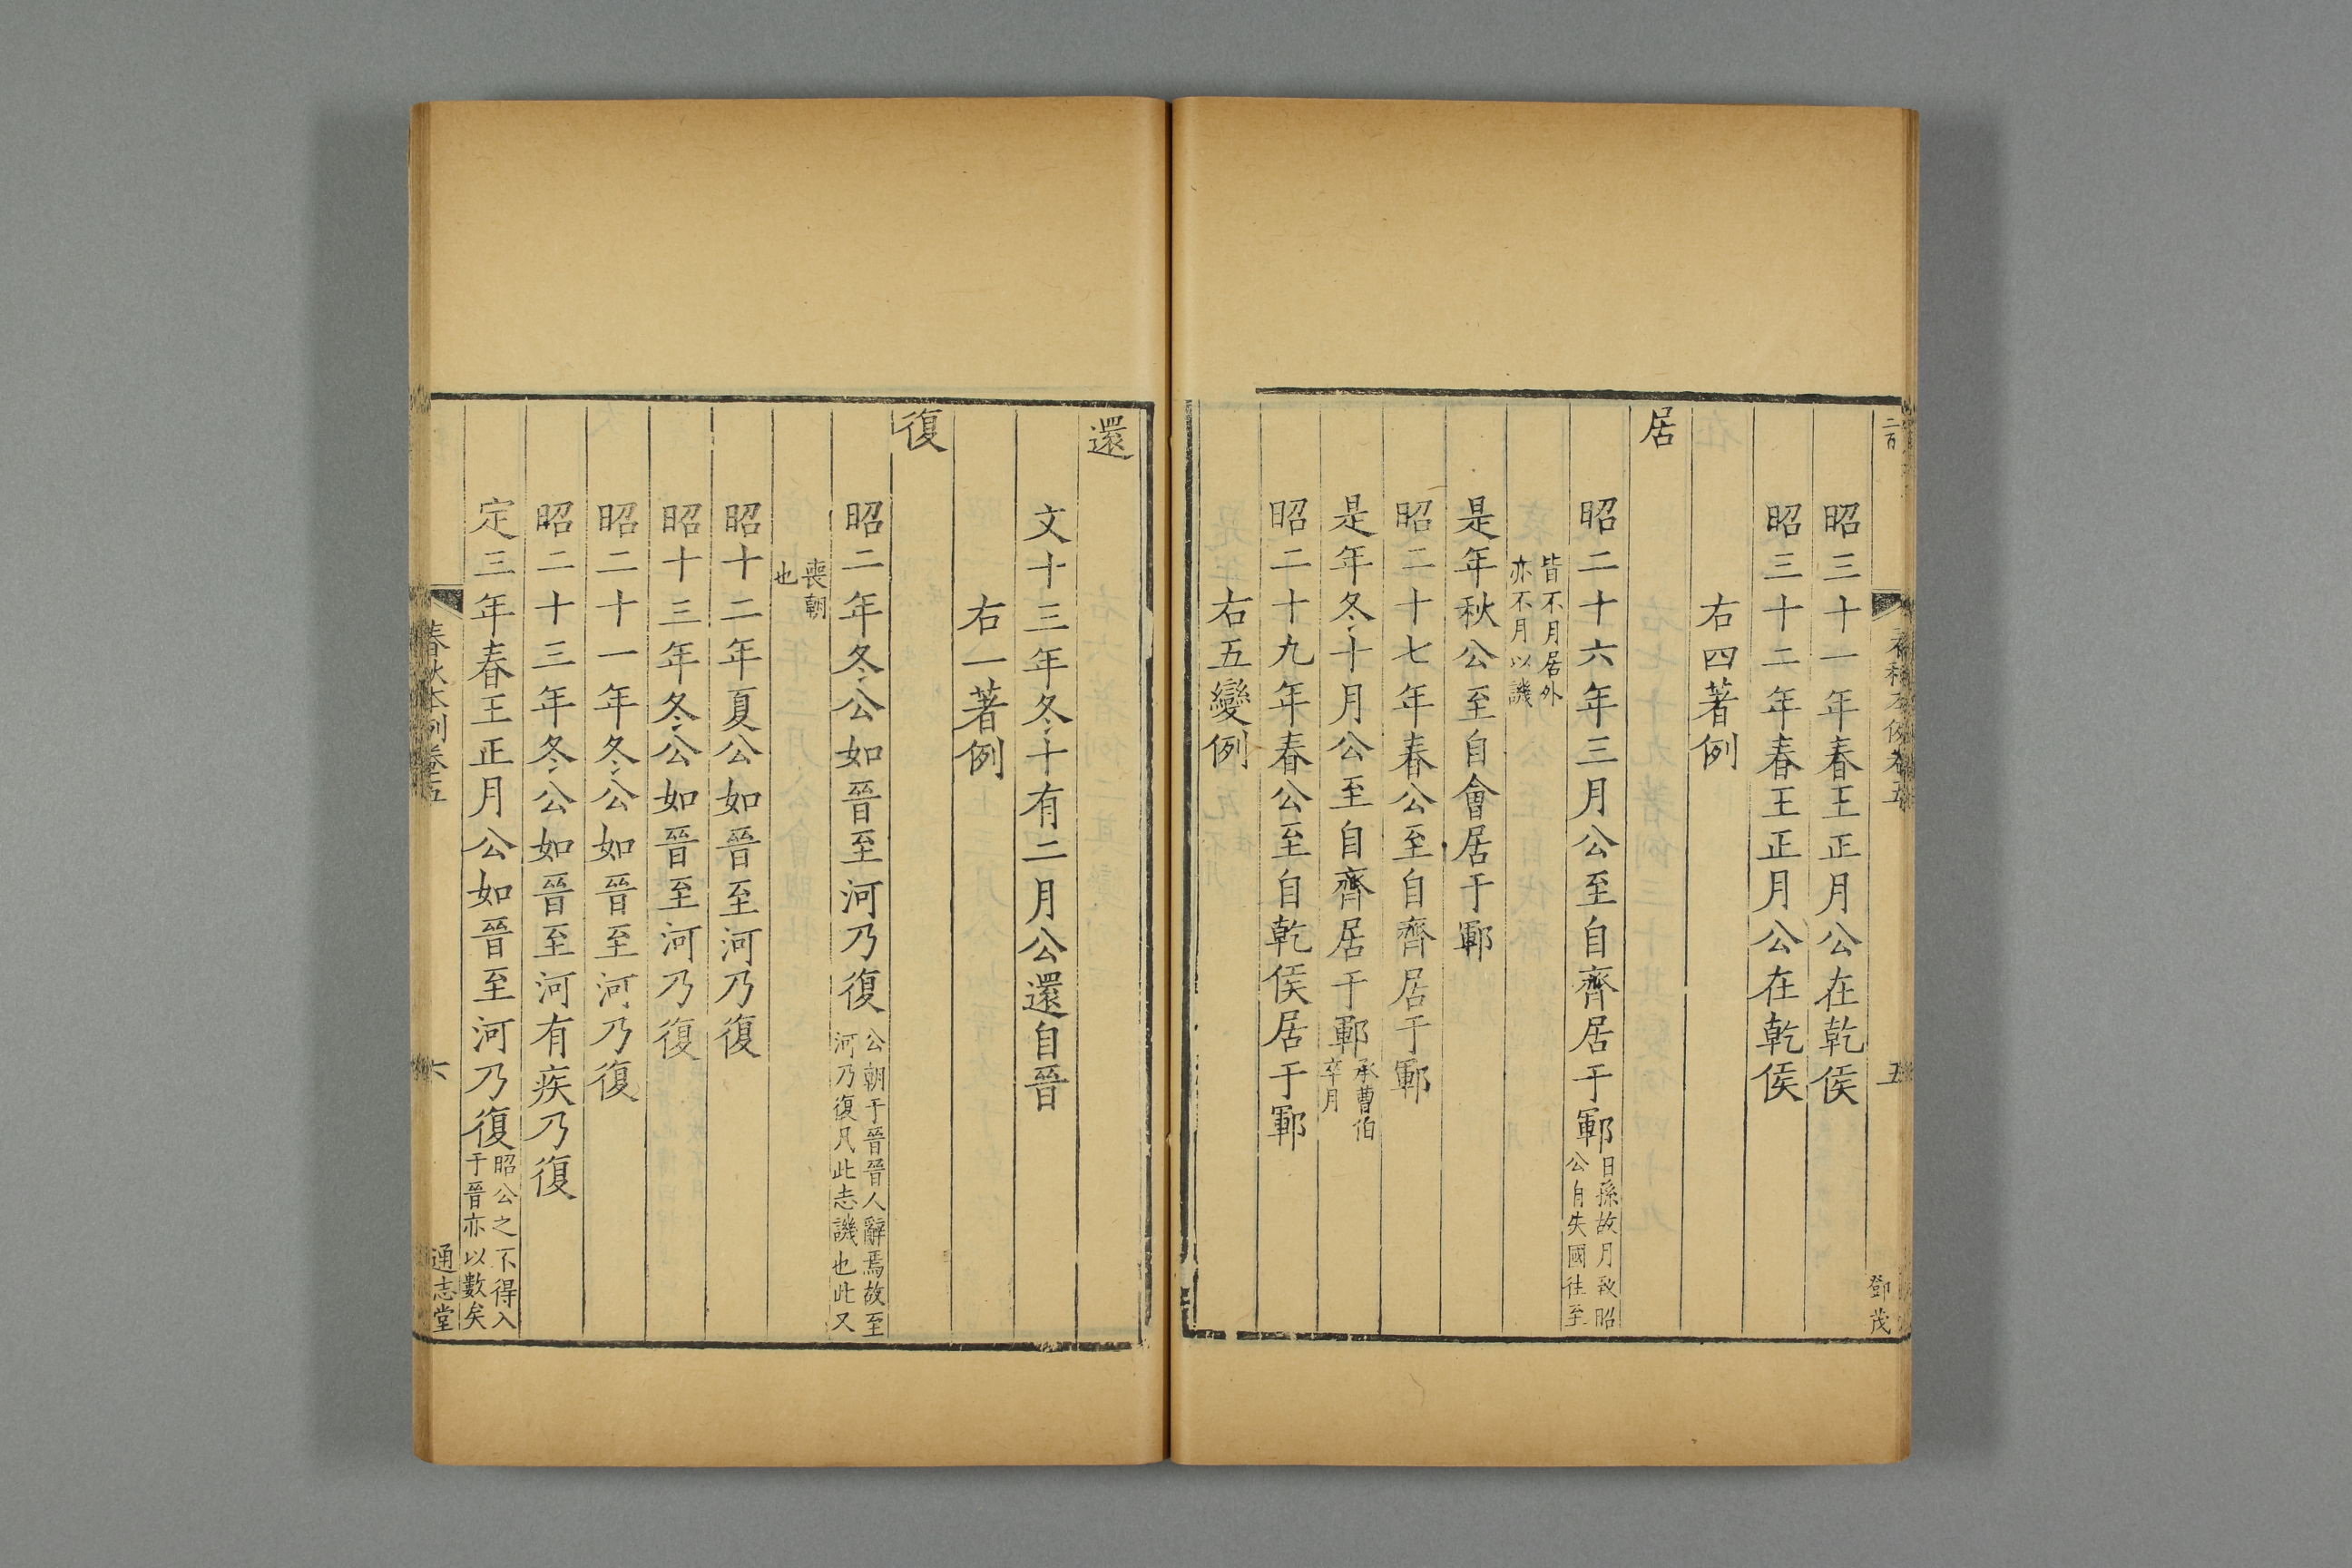 二百
春秋本例卷五
五
鄧茂
昭三十一年春王正月公在乾侯
昭三十二年春王正月公在乾侯
右四著例
居
昭二十六年三月公至自齊居于鄆日孫故月致昭
公自失國往至
皆不月居外
亦不月以譏
是年秋公至自會居于鄆
昭二十七年春公至自齊居于鄆
是年冬十月公至自齊居于鄆承曹伯
卒月
昭二十九年春公至自乾侯居于鄆
右五變例
還
文十三年冬十有二月公還自晉
右一著例
復
昭二年冬公如晉至河乃復公朝于晉晉人辭焉故至
河乃復凡此志譏也此又
喪朝
也
昭十二年夏公如晉至河乃復
昭十三年冬公如晉至河乃復
昭二十一年冬公如晉至河乃復
昭二十三年冬公如晉至河有疾乃復
定三年春王正月公如晉至河乃復昭公之不得入
于晉亦以數矣
春秋本例卷五
六
通志堂